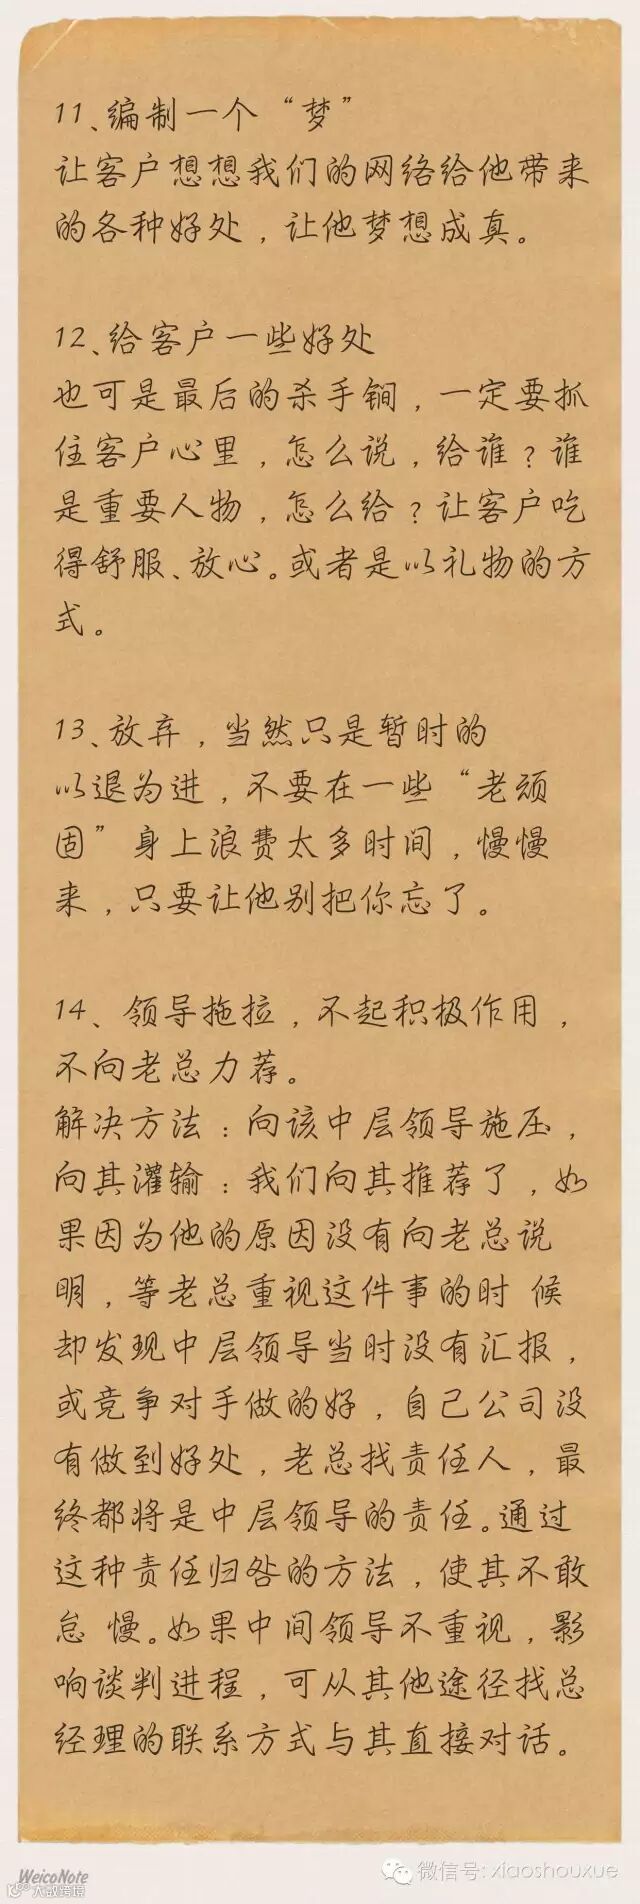 11、编制一个“梦”
让客户想想我们的网络给他带来
的各种好处，让他梦想成真。
12、给客户一些好处
也可是最后的杀手锏，一定要抓
住客户心里，怎么说，给谁？谁
是重要人物，怎么给？让客户吃
得舒服、放心。或者是以礼物的方
式。
13、放弃，当然只是暂时的
以退为进，不要在一些“老顽
固”身上浪费太多时间，慢慢
来，只要让他别把你忘了。
14、领导拖拉，不起积极作用，
不向老总力荐。
解决方法：向该中层领导施压，
向其灌输：我们向其推荐了，如
果因为他的原因没有向老总说
明，等老总重视这件事的时 候
却发现中层领导当时没有汇报，
或竞争对手做的好，自己公司没
有做到好处，老总找责任人，最
终都将是中层领导的责任。通过
这种责任归咎的方法，使其不敢
怠 慢。如果中间领导不重视，影
响谈判进程，可从其他途径找总
经理的联系方式与其直接对话。
WeicoNote
微信号: xiaoshouxue
大数跨境